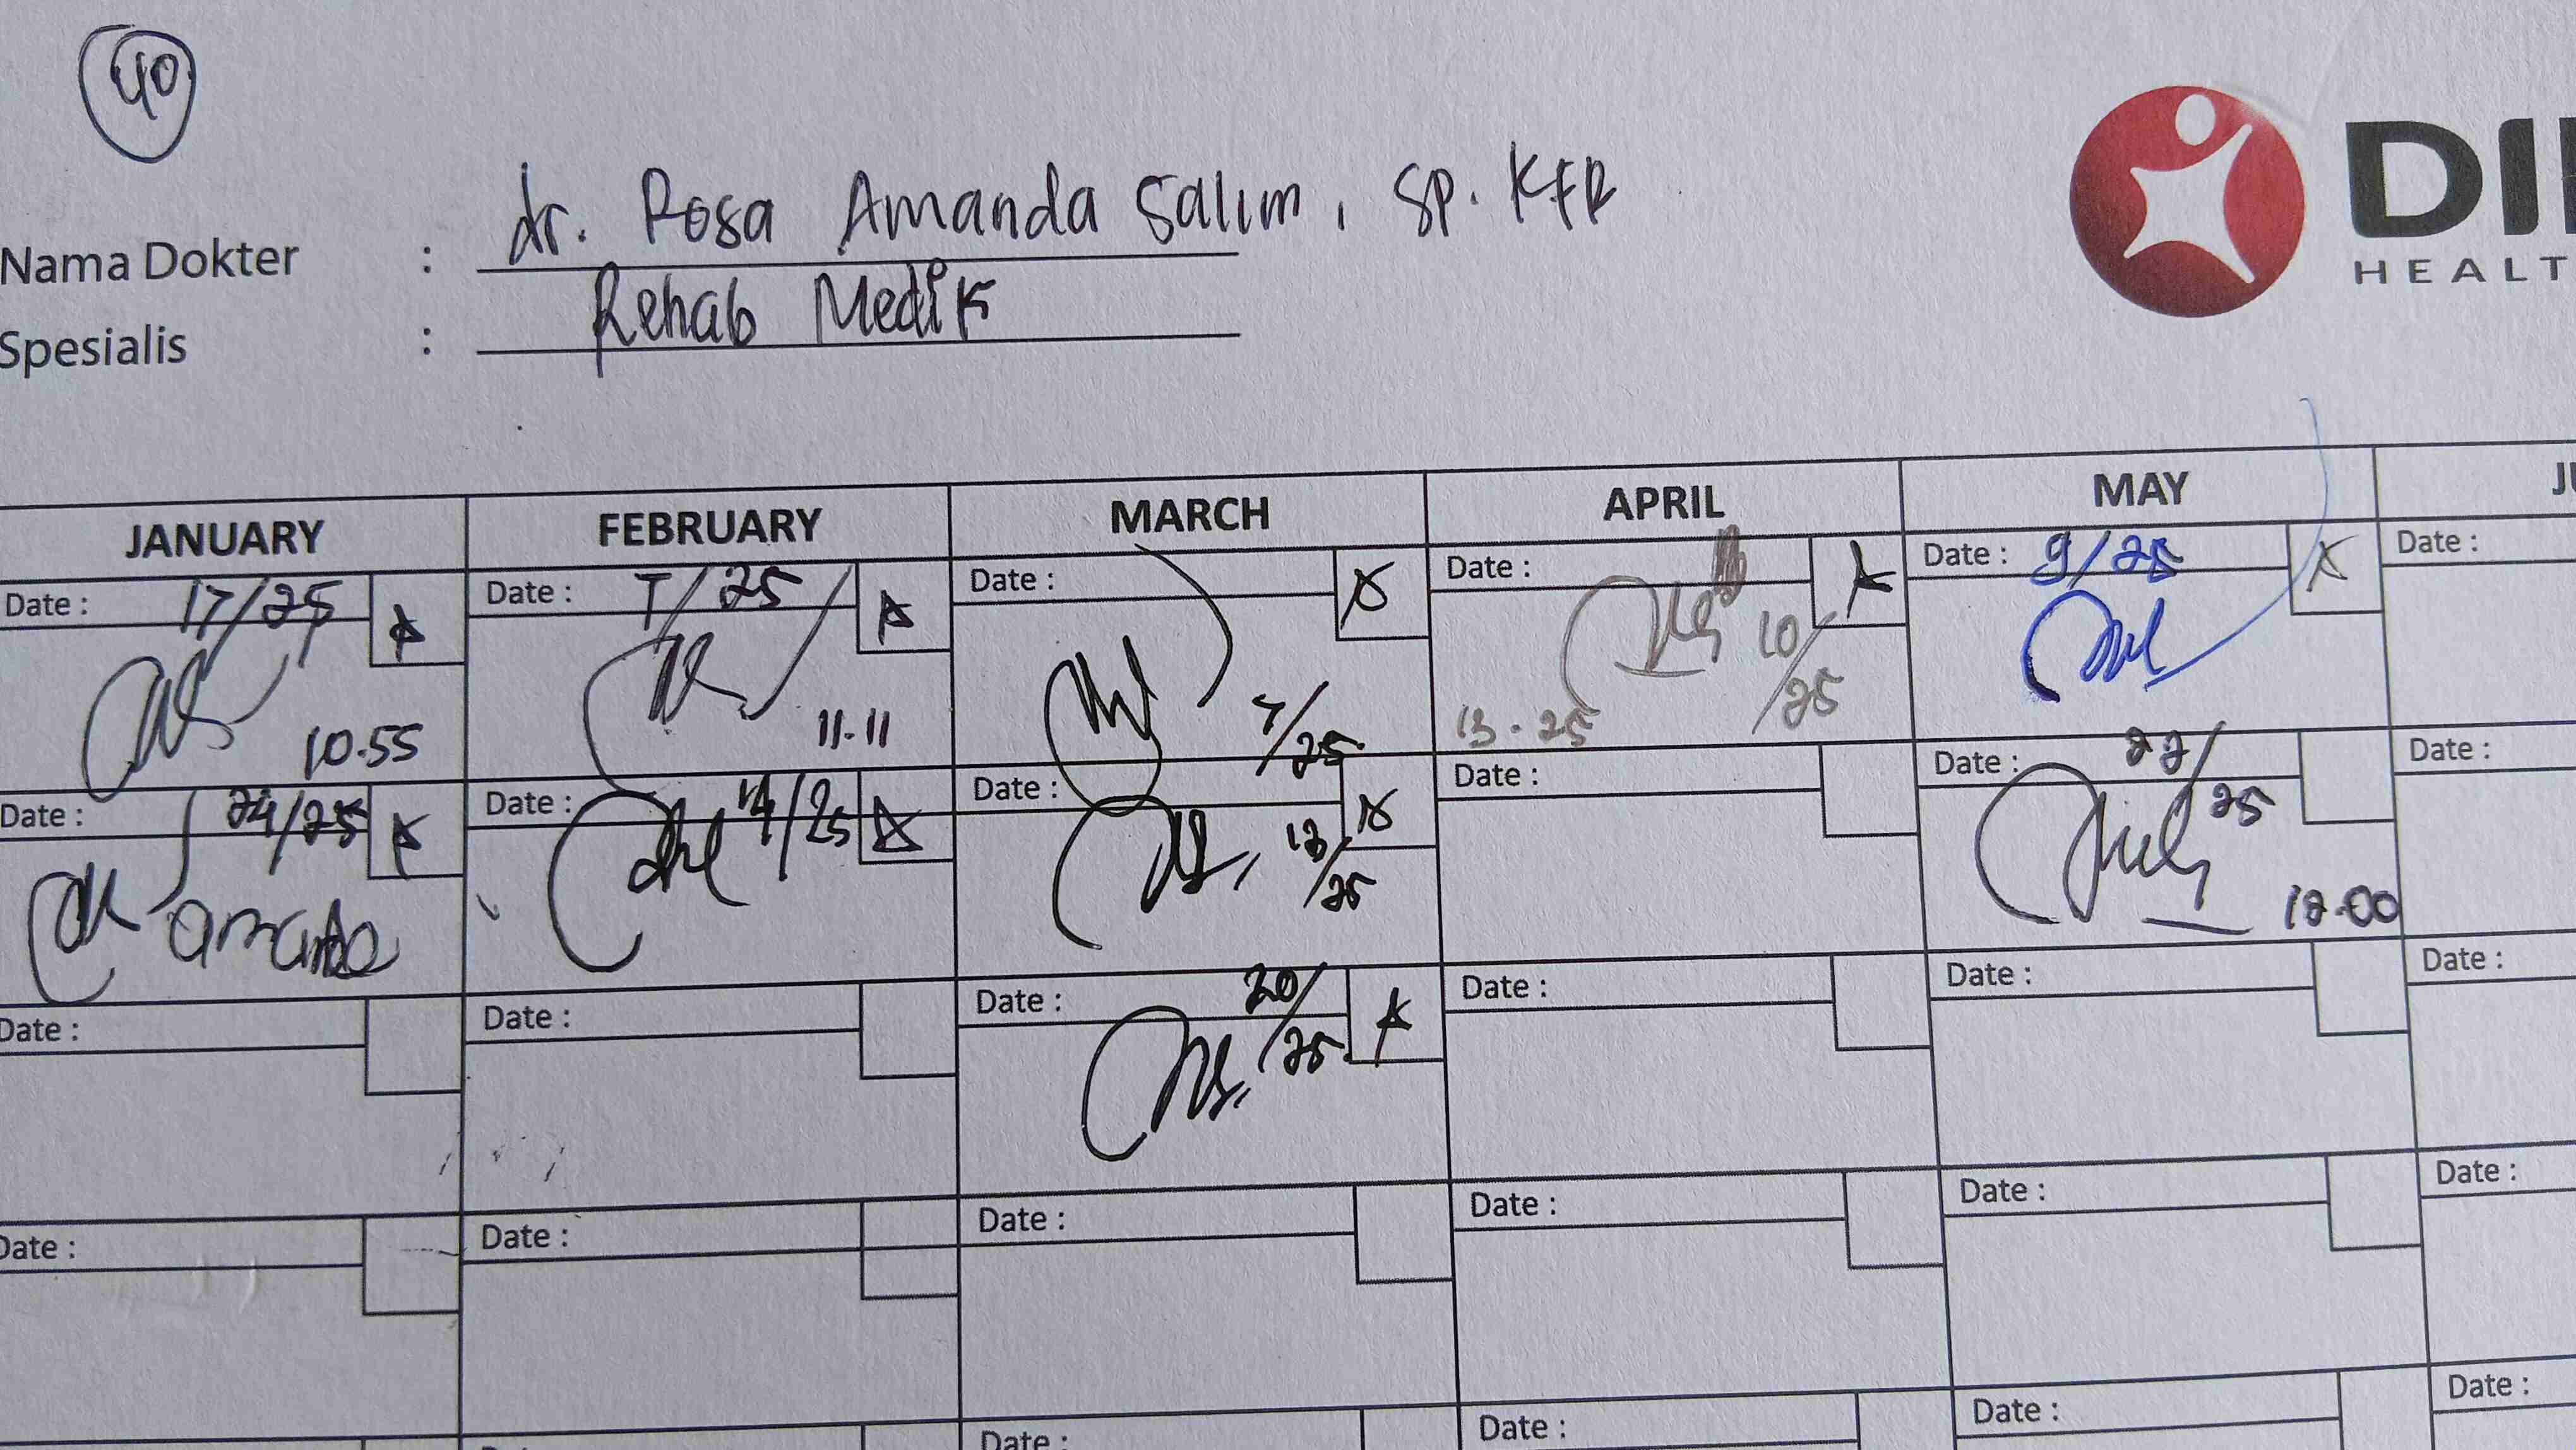 40
dr. Rosa Amanda Salim, Sp. KFR
Nama Dokter :
Rehab Medik
Spesialis :
DI
HEALT
JANUARY FEBRUARY MARCH APRIL MAY JU
Date : 17/25 Date : 7/25 Date : Date : Date : 9/25 Date :
10/25
10.55 11.11 7/25 13.25
Date : 24/25 Date : 14/25 Date : 13/25 Date : Date : 22/25 Date :
amanda 12.00
Date : Date : Date : 20/25 Date : Date : Date :
Date : Date : Date : Date : Date : Date :
Date : Date : Date : Date :